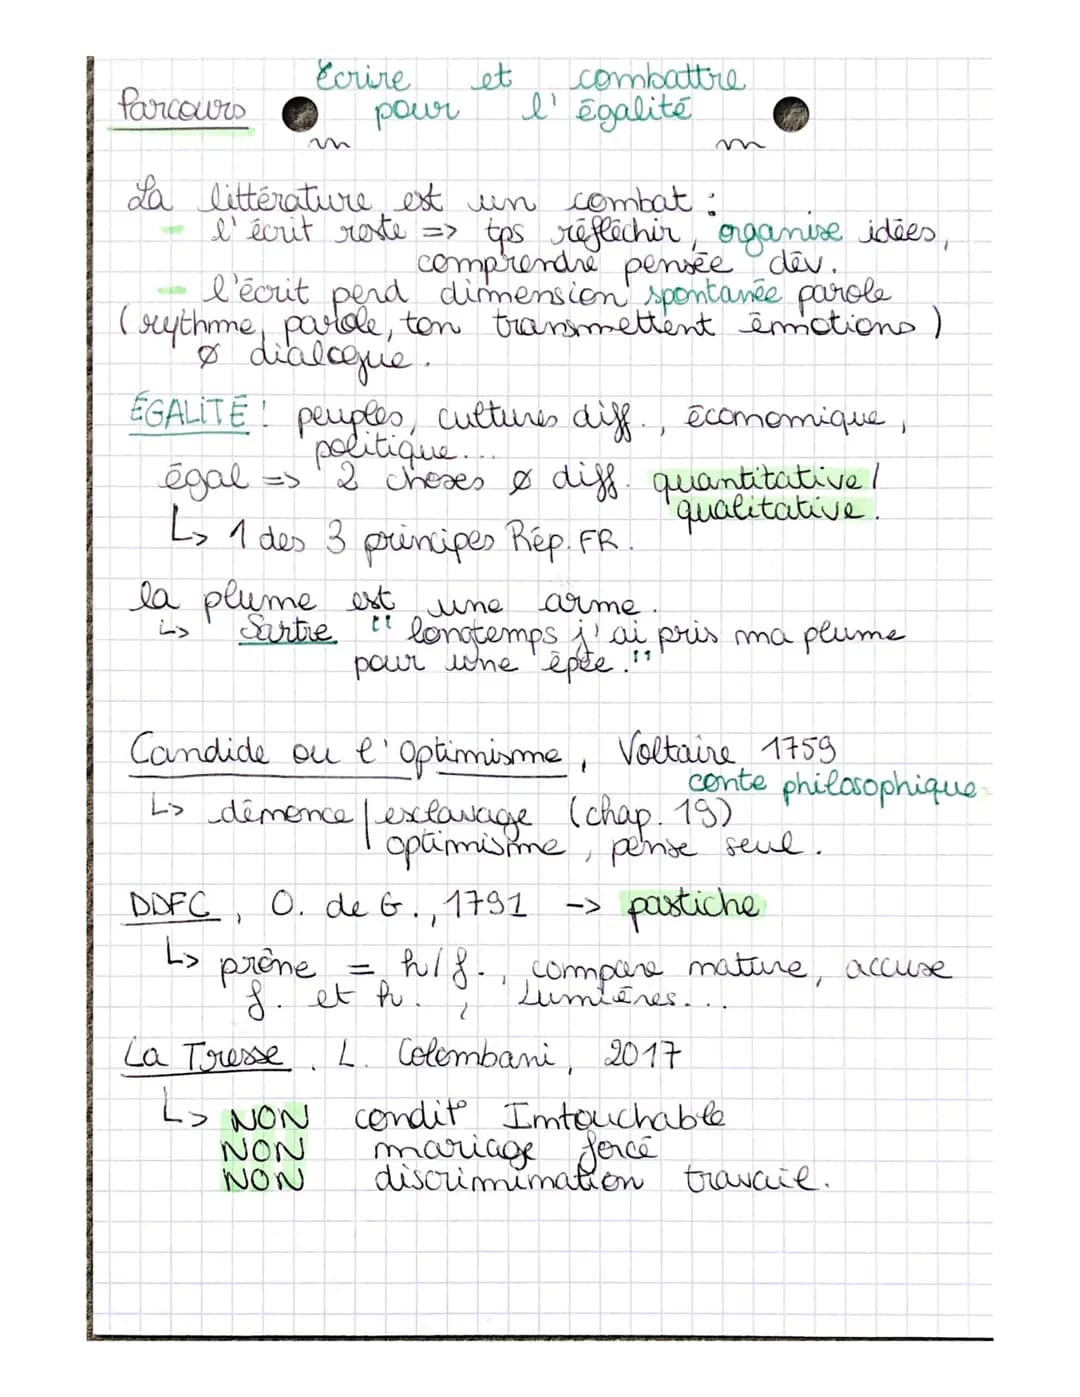 Parcours
Écrire et combattre
pour l'égalité
La littérature est un combat :
- l'écrit reste => tps réfléchir, organise idées,
comprendre pensée dév.
- l'écrit perd dimension spontanée parole
(rythme, parole, ton transmettent émotions)
ø dialogue.
ÉGALITÉ ! peuples, cultures diff., économique,
politique...
égal => 2 choses ø diff. quantitative /
qualitative.
↳ 1 des 3 principes Rép. FR.
la plume est une arme.
↳ Sartre "longtemps j'ai pris ma plume
pour une épée."
Candide ou l'Optimisme, Voltaire 1759
conte philosophique
↳ dénonce | esclavage (chap. 19)
optimisme, pense seul.
DDFC, O. de G., 1791 -> pastiche
↳ prône = h/f., compare nature, accuse
f. et h., Lumières...
La Tresse. L. Colombani, 2017
↳ NON condit° Intouchable
NON mariage forcé
NON discrimination travail.